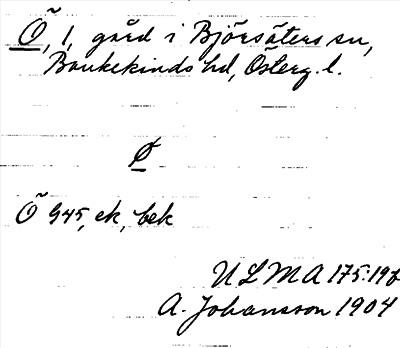 Õ, 1, gård i Björsäters sn,
Bankekinds hd, Österg. l.
Ø
Õ 945, ek, bek
ULMA 175:19b
A. Johansson 1904